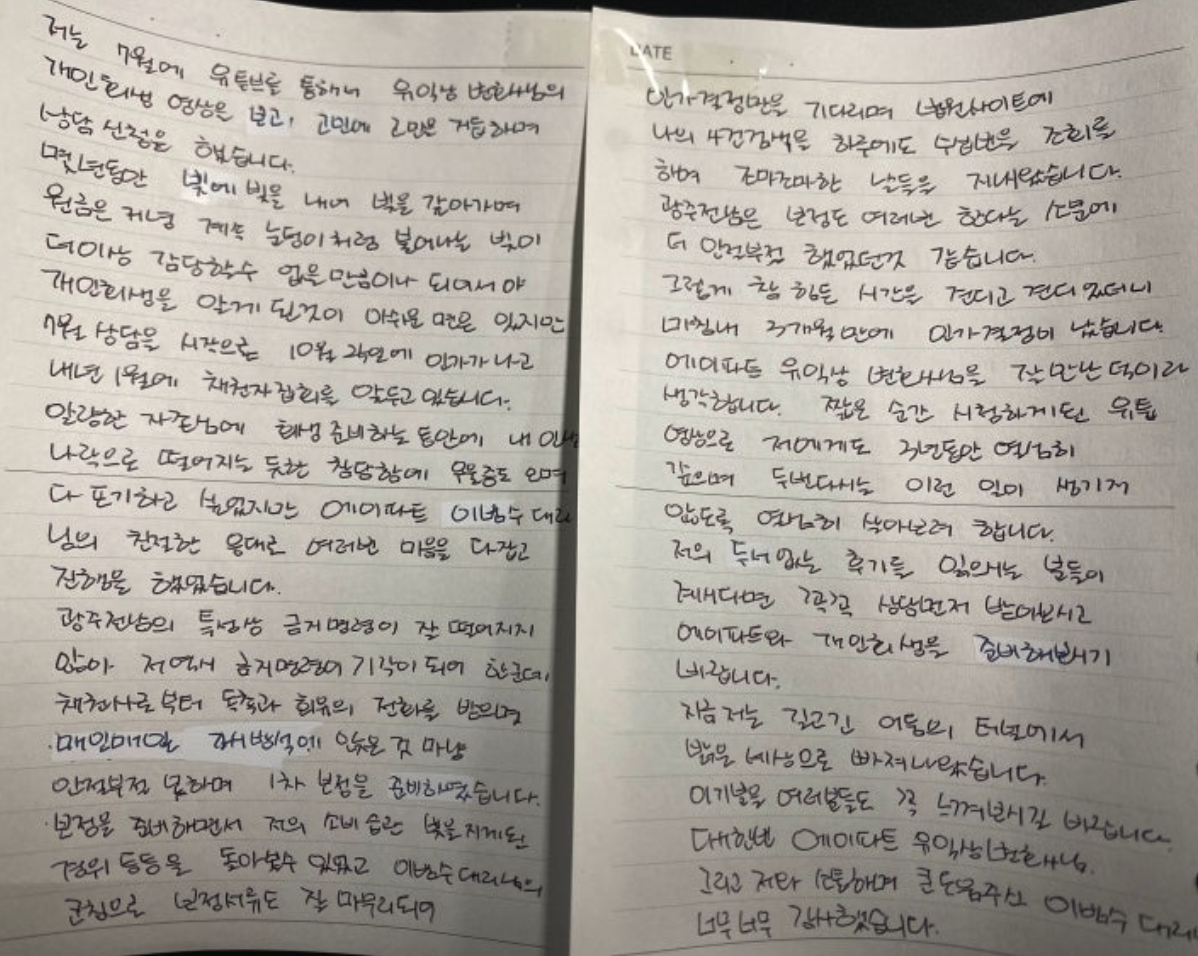 저는 7월에 유튜브를 통해서 유익상 변호사님의
개인회생 영상을 보고, 고민에 고민을 거듭하며
상담 신청을 했습니다.
몇년동안 빚에 빚을 내어 빚을 갚아가며
원금은 커녕 계속 눈덩이처럼 불어나는 빚이
더이상 감당할수 없을만큼이나 되어서야
개인회생을 알게 된것이 아쉬운 면은 있지만
7월 상담을 시작으로 10월 24일에 인가가 나고
내년 1월에 채권자집회를 앞두고 있습니다.
알량한 자존심에 회생 준비하는 동안에 내 인생
나락으로 떨어지는 듯한 참담함에 우울증도 오며
다 포기하고 싶었지만 에이파트 이범수 대리
님의 친절한 응대로 여러번 마음을 다잡고
진행을 했었습니다.
광주전남의 특성상 금지명령이 잘 떨어지지
않아 저역시 금지명령이 기각이 되어 한군데,
채권사로부터 독촉과 회유의 전화를 받으며
매일매일 가시방석에 앉은 것 마냥
안절부절 못하며 1차 보정을 준비하였습니다.
보정을 준비하면서 저의 소비습관 빚을지게된
경위 등등을 돌아볼수 있었고 이범수대리님의
코칭으로 보정서류도 잘 마무리되어
DATE
인가결정만을 기다리며 법원사이트에
나의 사건검색을 하루에도 수십번을 조회를
하며 조마조마한 날들을 지내왔습니다.
광주전남은 보정도 여러번 한다는 소문에
더 안절부절 했었던것 같습니다.
그렇게 참 힘든 시간을 견디고 견디었더니
마침내 3개월만에 인가결정이 났습니다.
에이파트 유익상 변호사님을 잘 만난 덕이라
생각합니다. 짧은 순간 시청하게된 유튭
영상으로 저에게도 3년동안 열심히
갚으며 두번다시는 이런 일이 생기지
않도록 열심히 살아보려 합니다.
저의 두서없는 후기를 읽으시는 분들이
계시다면 꼭꼭 상담먼저 받아보시고
에이파트와 개인회생을 준비해보시기
바랍니다.
지금 저는 길고긴 어둠의 터널에서
밝은 세상으로 빠져나왔습니다.
이기분을 여러분들도 꼭 느껴보시길 바랍니다.
대한변 에이파트 유익상변호사님.
그리고 저와 소통하며 큰도움주신 이범수 대리
너무너무 감사했습니다.